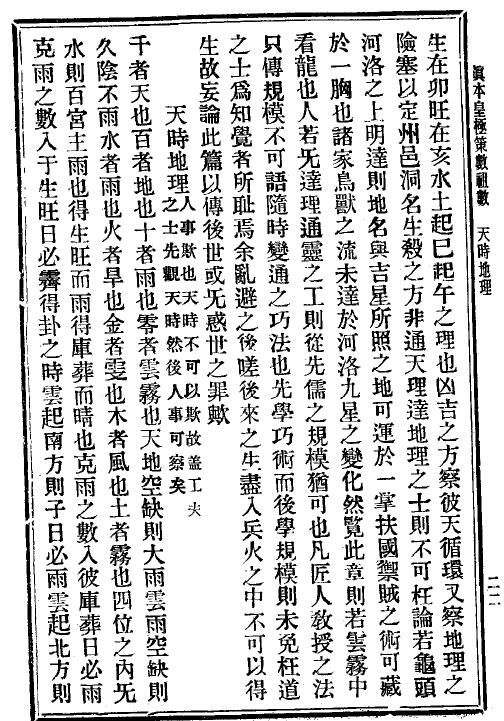 眞本皇極策數祖數 天時地理
二二
生在卯旺在亥水土起巳起午之理也凶吉之方察彼天循環又察地理之
險塞以定州邑洞名生殺之方非通天理達地理之士則不可枉論若龜頭
河洛之上明達則地名與吉星所照之地可運於一掌扶國禦賊之術可藏
於一胸也諸家鳥獸之流未達於河洛九星之變化然覽此章則若雲霧中
看龍也人若旡達理通靈之工則從先儒之規模猶可也凡匠人敎授之法
只傳規模不可語隨時變通之巧法也先學巧術而後學規模則未免枉道
之士爲知覺者所耻焉余亂避之後嗟後來之生盡入兵火之中不可以得
生故妄論此篇以傳後世或旡惑世之罪歟
天時地理人事欺也天時不可以欺故盖工夫
之士先觀天時然後人事可察矣
千者天也百者地也十者雨也零者雲霧也天地空缺則大雨雲雨空缺則
久陰不雨水者雨也火者旱也金者雯也木者風也土者霧也四位之內旡
水則百宮主雨也得生旺而雨得庫葬而晴也克雨之數入彼庫葬日必雨
克雨之數入于生旺日必霽得卦之時雲起南方則子日必雨雲起北方則